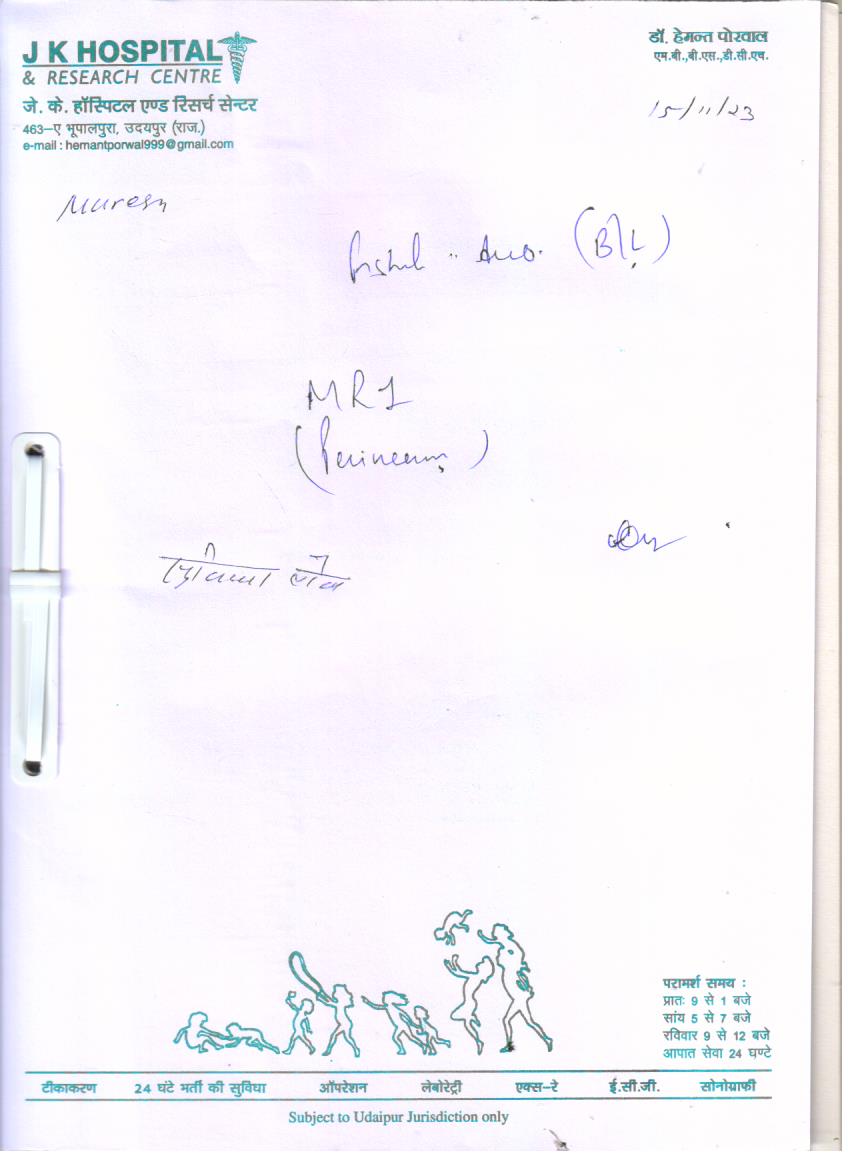 J K HOSPITAL
& RESEARCH CENTRE
जे. के. हॉस्पिटल एण्ड रिसर्च सेन्टर
463–ए भूपालपुरा, उदयपुर (राज.)
e-mail : hemantporwal999@gmail.com
डॉ. हेमन्त पोरवाल
एम.बी.,बी.एस.,डी.सी.एच.
15/11/23
Naresh
(B/L)
MRI
(Perineum)
परामर्श समय :
प्रातः 9 से 1 बजे
सांय 5 से 7 बजे
रविवार 9 से 12 बजे
आपात सेवा 24 घण्टे
टीकाकरण 24 घंटे भर्ती की सुविधा ऑपरेशन लेबोरेट्री एक्स–रे ई.सी.जी. सोनोग्राफी
Subject to Udaipur Jurisdiction only